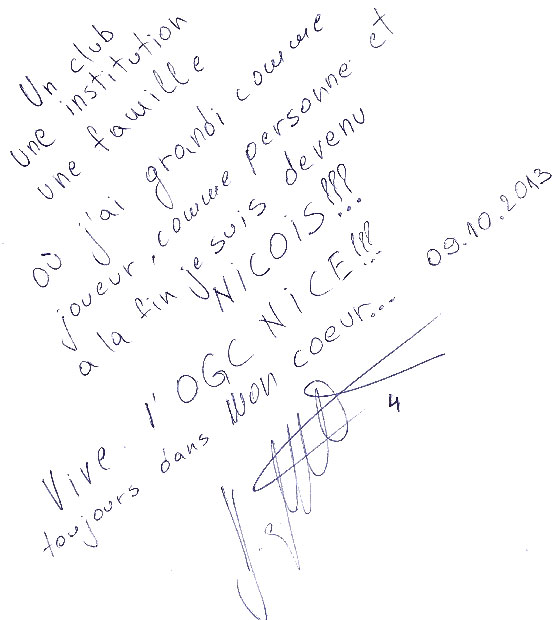 Un club
une institution
une famille
où j'ai grandi comme
joueur, comme personne et
a la fin je suis devenu
NICOIS!!!
Vive l'OGC NICE!!!
toujours dans mon coeur...
09.10.2013
4